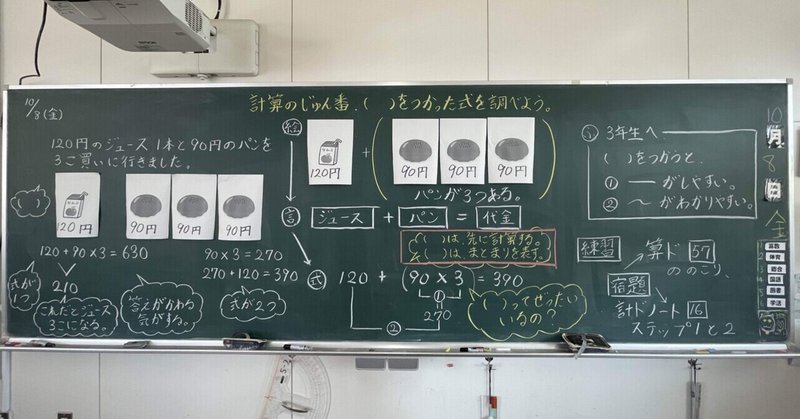 10/8(金)
計算のじゅん番、( )をつかった式を調べよう。
120円のジュース1本と90円のパンを
3こ買いに行きました。
( )
120円
90円
90円
90円
120+90×3=630
210
式が1つ
これだとジュース
3こになる。
90×3=270
270+120=390
答えがかわる
気がする。
式が2つ
絵
120円
+
(
90円
90円
90円
)
パンが3つある。
言
ジュース + パン = 代金
( )は先に計算する。
( )はまとまりを表す。
式
120+(90×3)=390
①
270
②
( )ってぜったい
いるの?
3年生へ
( )をつかうと、
① ーがしやすい。
② 〜がわかりやすい。
練習
算ド 57
ののこり、
宿題
計ドノート 16
ステップ1と2
10
月
8
金
算数
体育
総合
国語
図書
学活
EPSON